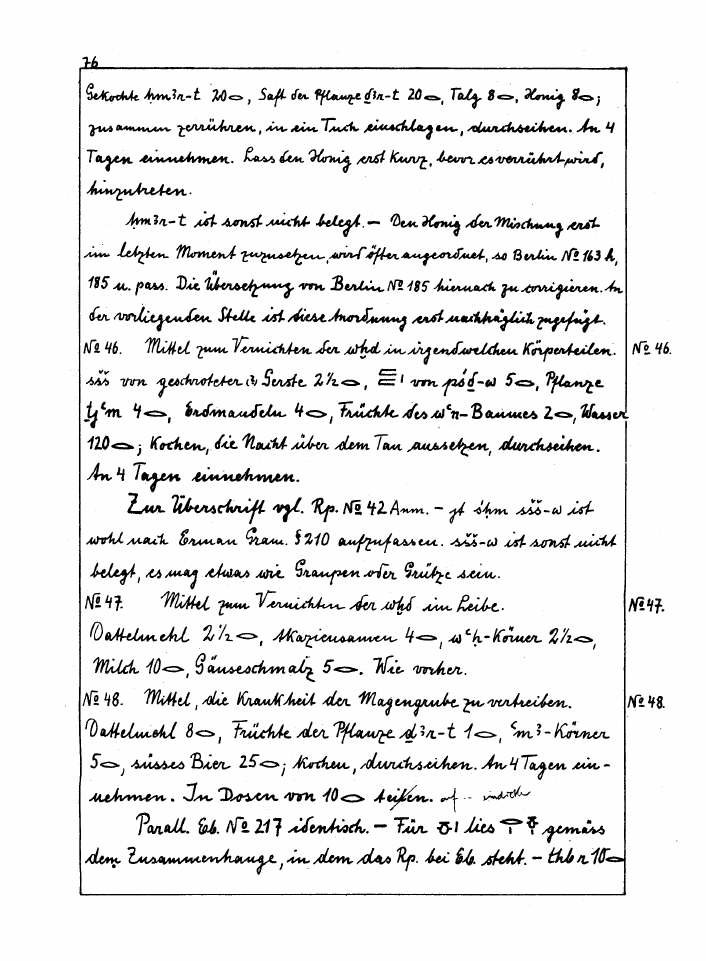 76
Gekochte ḥmꜣr-t 20⬭, Saft der Pflanze ḏꜣr-t 20⬭, Talg 8⬭, Honig 8⬭;
zusammen zerrühren, in ein Tuch einschlagen, durchseihen. An 4
Tagen einnehmen. Lass den Honig erst kurz, bevor es verrührt wird,
hinzutreten.
ḥmꜣr-t ist sonst nicht belegt. — Den Honig der Mischung erst
im letzten Moment zuzusetzen, wird öfter angeordnet, so Berlin No 163 h,
185 u. pass. Die Übersetzung von Berlin No 185 hiernach zu corrigieren. An
der vorliegenden Stelle ist diese Anordnung erst nachträglich zugefügt.
No 46. Mittel zum Vernichten der wḫd in irgendwelchen Körperteilen. No 46.
sšš von geschroteter (?) Gerste 2½⬭, von psḏ-w 5⬭, Pflanze
ṯꜥm 4⬭, Erdmandeln 4⬭, Früchte des wꜥn-Baumes 2⬭, Wasser
120⬭; kochen, die Nacht über dem Tau aussetzen, durchseihen.
An 4 Tagen einnehmen.
Zur Überschrift vgl. Rp. No 42 Anm. — sšš-w ist
wohl nach Erman Gram. § 210 aufzufassen. sšš-w ist sonst nicht
belegt, es mag etwas wie Graupen oder Grütze sein.
No 47. Mittel zum Vernichten der wḫd im Leibe. No 47.
Dattelmehl 2½⬭, Akaziensamen 4⬭, wꜥḥ-Körner 2½⬭,
Milch 10⬭, Gänseschmalz 5⬭. Wie vorher.
No 48. Mittel, die Krankheit der Magengrube zu vertreiben. No 48.
Dattelmehl 8⬭, Früchte der Pflanze ḏꜣr-t 1⬭, ꜥmꜣ-Körner
5⬭, süsses Bier 25⬭; kochen, durchseihen. An 4 Tagen ein-
nehmen. In Dosen von 10⬭ teilen.
Parall. Eb. No 217 identisch. — Für lies gemäss
dem Zusammenhange, in dem das Rp. bei Eb. steht. — thb n 10⬭